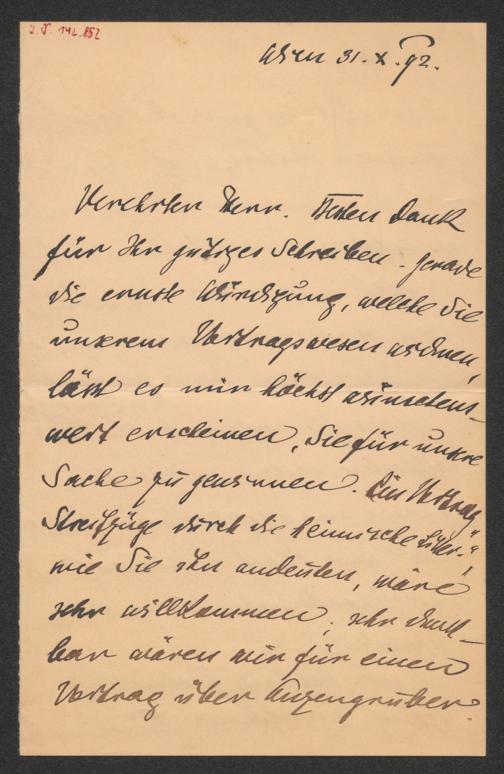 I.N. 142.852
Wien 31. X. 92.
Verehrter Herr. Besten Dank
für Ihr gütiges Schreiben. Gerade
die ernste Würdigung, welche Sie
unserem Vortragswesen widmen,
läßt es mir höchst wünschens-
wert erscheinen, Sie für unsre
Sache zu gewinnen. Ein Vortrag
Streifzüge durch die heimische Liter.",
wie Sie ihn andeuten, wäre
sehr willkommen; sehr dank-
bar wären wir für einen
Vortrag über Anzengruber.